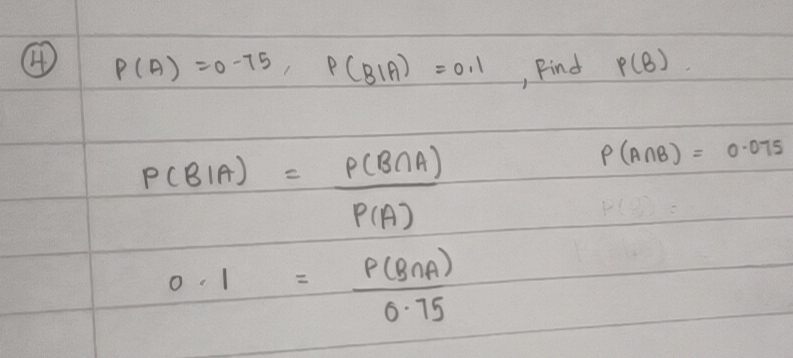 4 P(A) = 0.75, P(B|A) = 0.1, Find P(B).
P(B|A) = P(B∩A) / P(A) P(A∩B) = 0.075
0.1 = P(B∩A) / 0.75